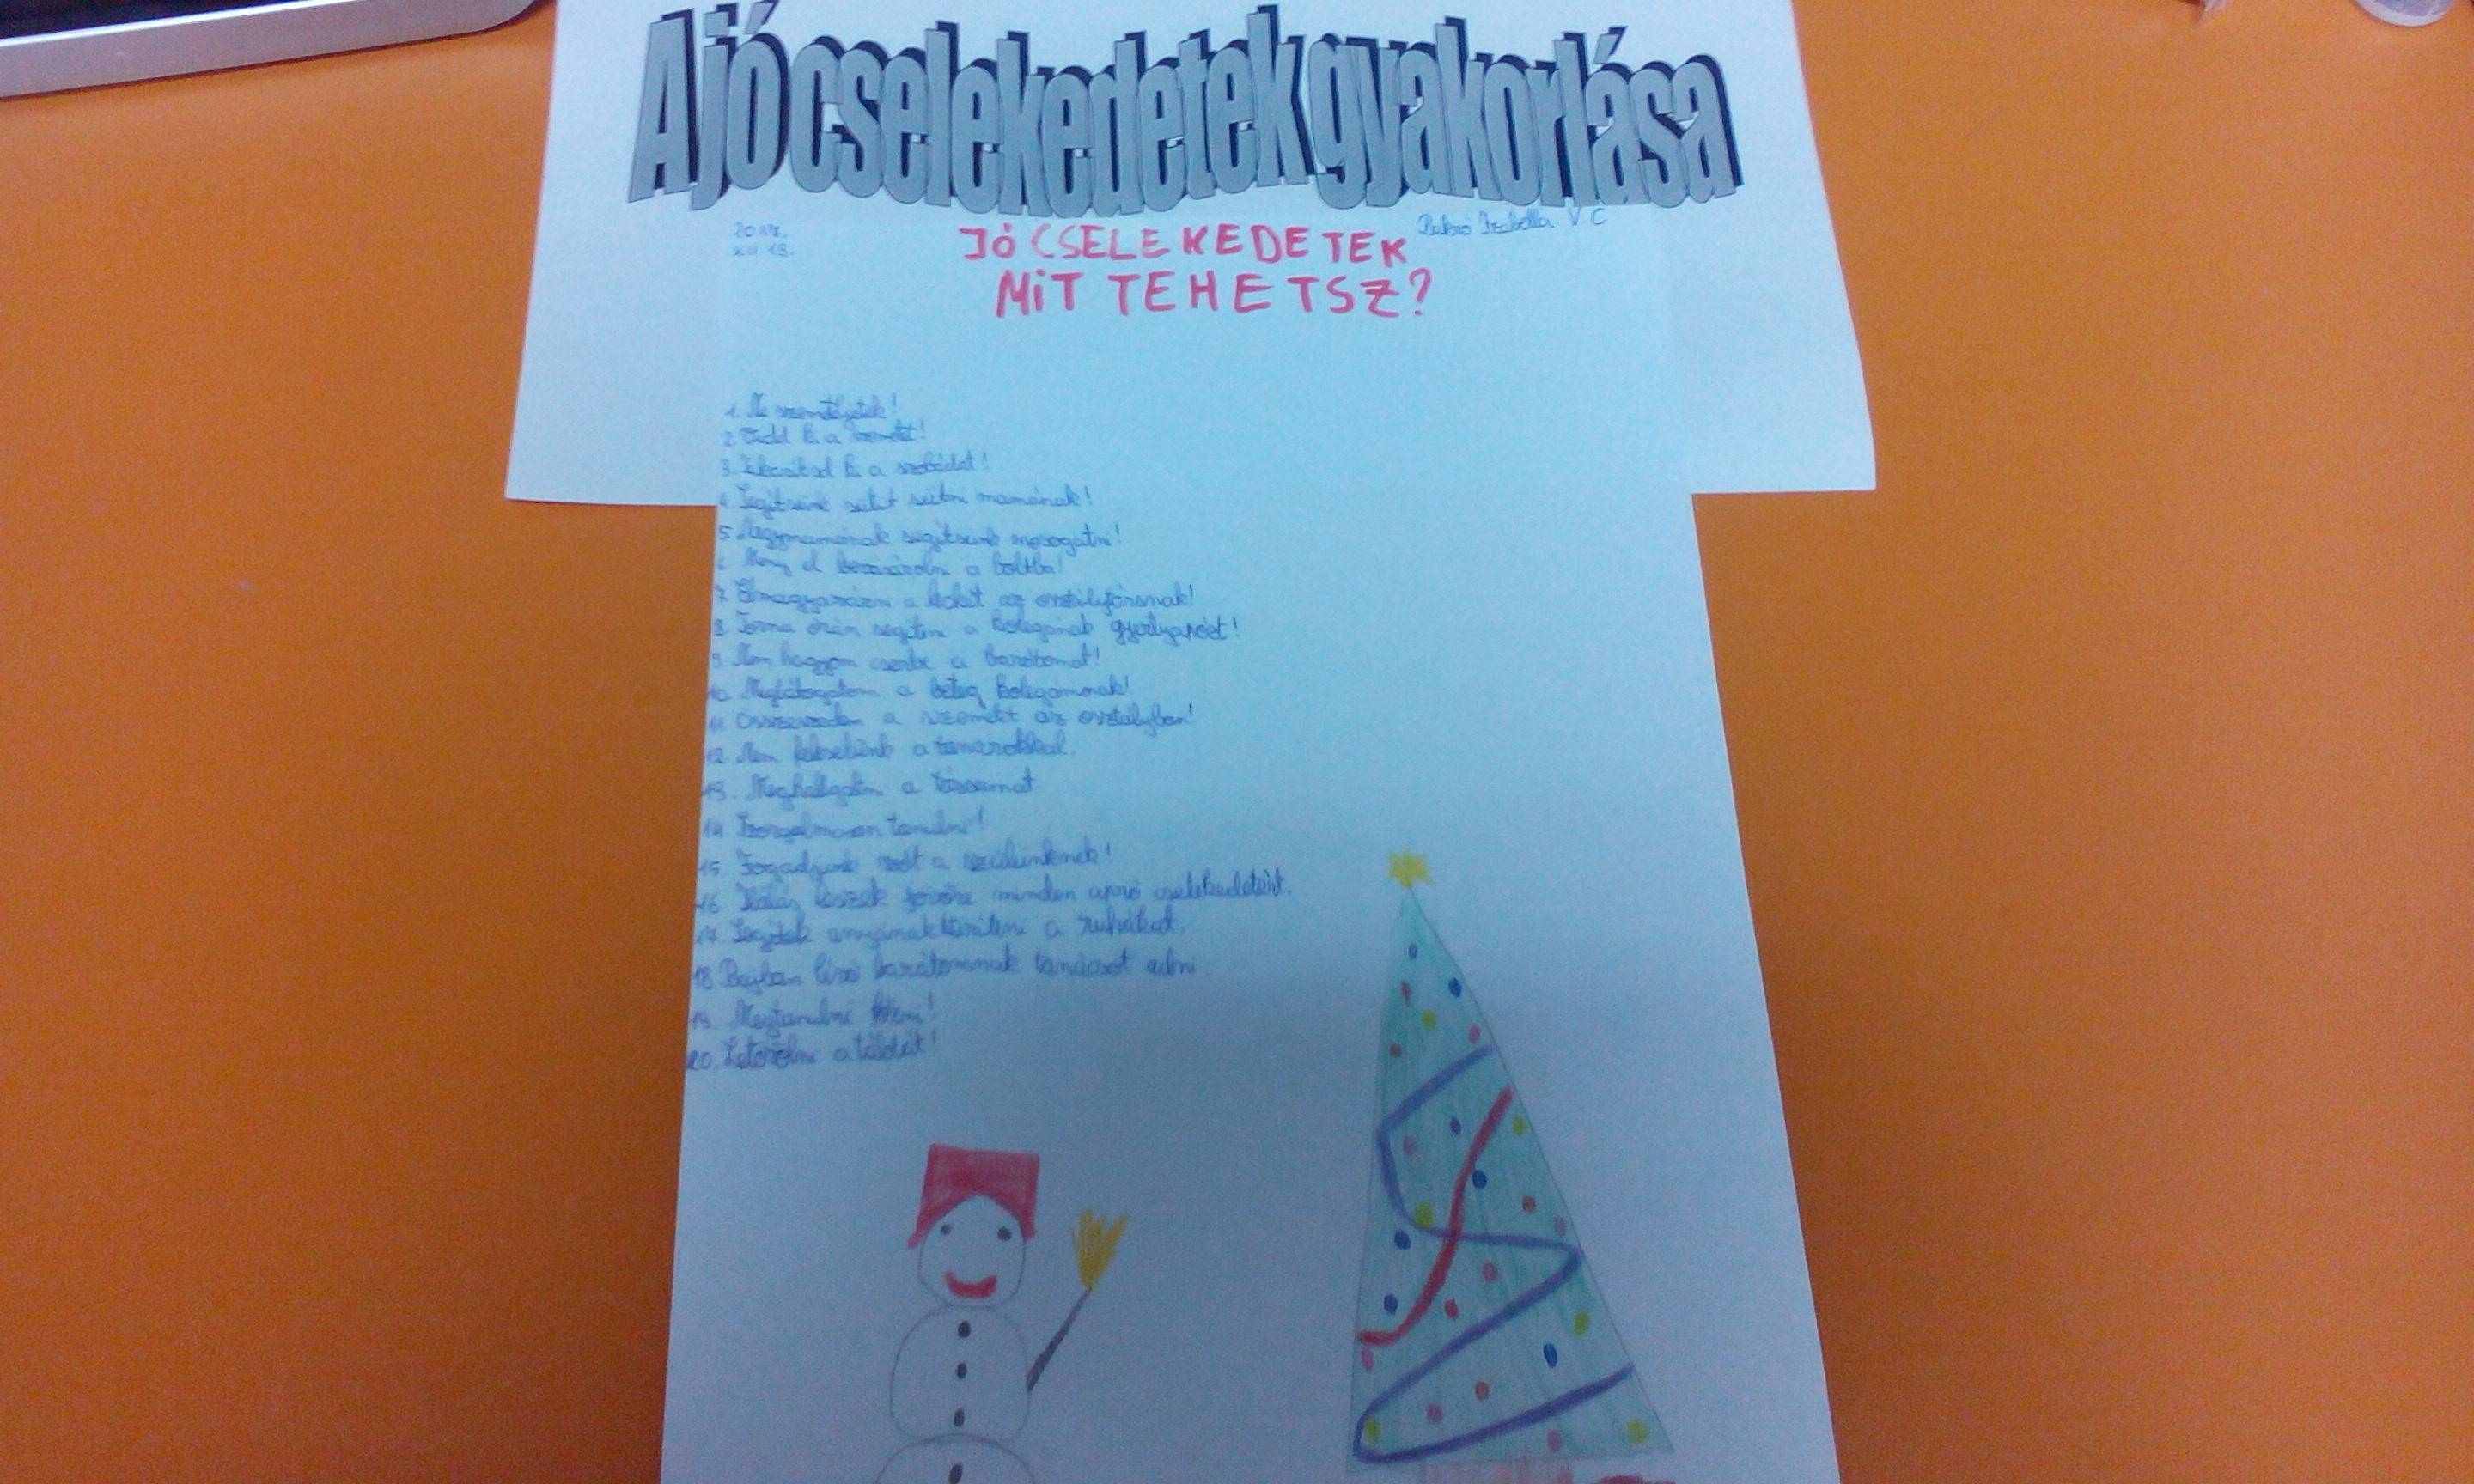 A jó cselekedetek gyakorlása
2017. Izabella V. C
XII. 13. JÓ CSELEKEDETEK
MIT TEHETSZ?
1. Ne szemeteljetek!
2. Vidd ki a szemetet!
3. ki a szobádat!
4. sütit sütni mamának!
5. Nagymamának segítsünk mosogatni!
6. Menj el bevásárolni a boltba!
7. Elmagyarázni a leckét az osztálytársnak!
8. Torna órán segíteni a kolegának
9. Nem hagyom cserbe a barátomat!
10. Meglátogatom a beteg
11. Összeszedem a szemetet az osztályban!
12. Nem a tanárokkal.
13. Meghallgatni a társamat
14. Szorgalmasan tanulni!
15. Fogadjunk szót a szüleinknek!
16. Hálás leszek minden apró cselekedetért.
17. Segítek anyának a ruhákat.
18. Bajban lévő barátomnak tanácsot adni
19. Megtanulni
20. Letörölni a táblát!